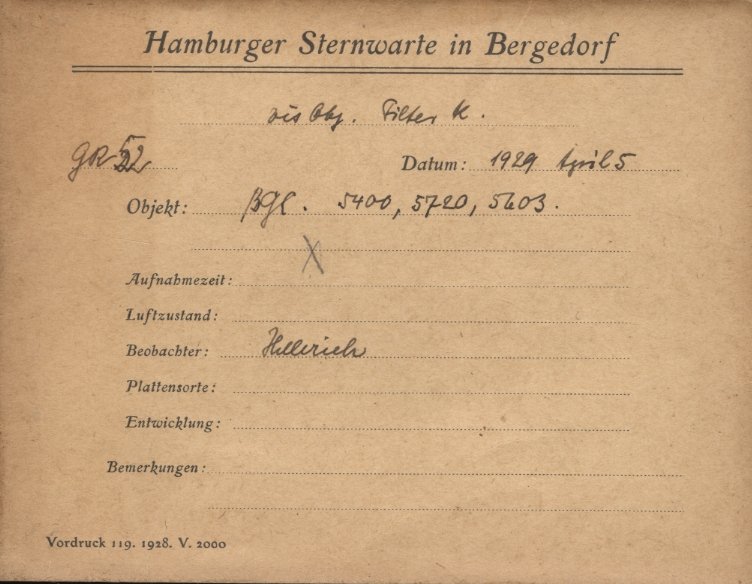 Hamburger Sternwarte in Bergedorf
vis Obj. Filter K.
GR 52
Datum: 1929 April 5
Objekt: BGC. 5400, 5720, 5603.
X
Aufnahmezeit:
Luftzustand:
Beobachter: Hellerich
Plattensorte:
Entwicklung:
Bemerkungen:
Vordruck 119. 1928. V. 2000